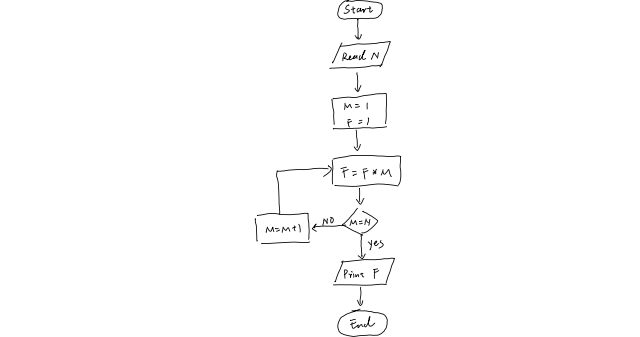 Start
Read N
M = 1
F = 1
F = F * M
M=N
NO
M=M+1
yes
Print F
End